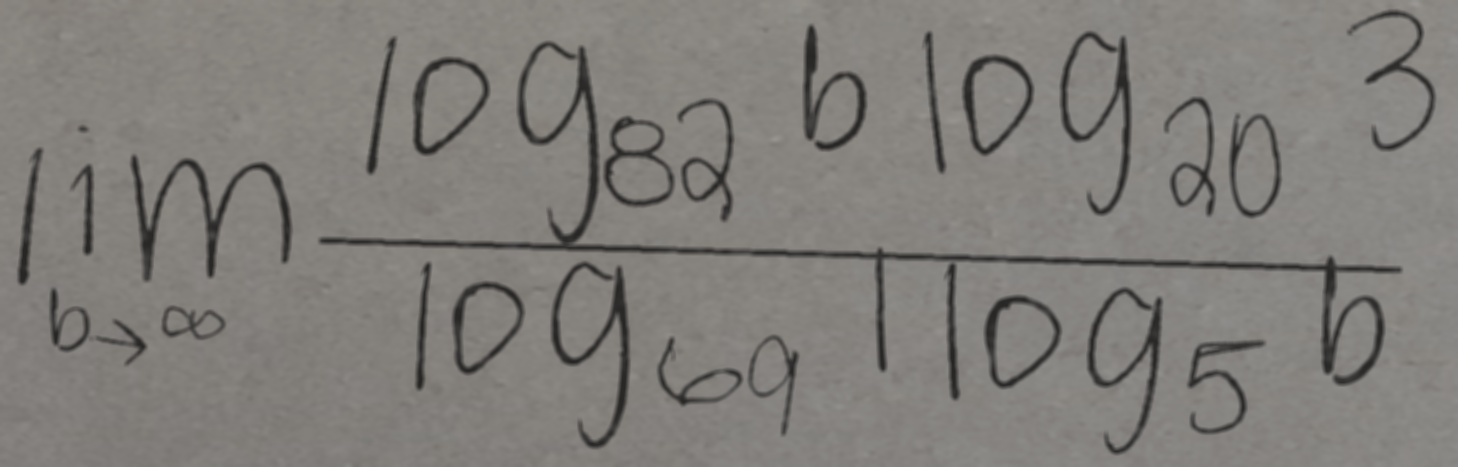 lim log₈₂ b log₂₀ 3
b→∞ log₆₉ 1 log₅ b